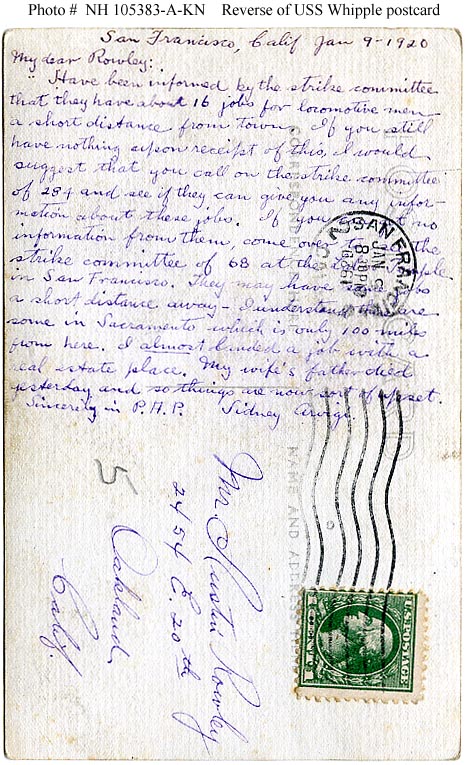 Photo # NH 105383-A-KN Reverse of USS Whipple postcard
San Francisco, Calif Jan 9-1920
My dear Rowley:
Have been informed by the strike committee
that they have about 16 jobs for locomotive men
a short distance from town. If you still
have nothing upon receipt of this, I would
suggest that you call on the strike committee
of 284 and see if they can give you any infor-
mation about these jobs. If you get no
information from them, come over to the
strike committee of 68 at the Temple
in San Francisco. They may have some jobs
a short distance away - I understand there are
some in Sacramento which is only 100 miles
from here. I almost landed a job with a
real estate place. My wife's father died
yesterday and so things are now sort of upset.
Sincerely in P.H.P. Sidney
SAN FRANCISCO
JAN
8 30 PM
NAME AND ADDRESS HERE
5
Mr. Austin Rowley
2454 E. 20th
Oakland,
Calif.
U.S. POSTAGE